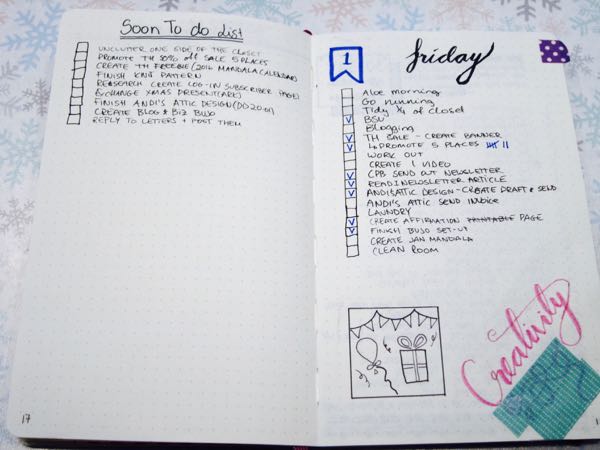 Soon To do List
UNCLUTTER ONE SIDE OF THE CLOSET
PROMOTE TH 50% off SALE 5 PLACES
CREATE TH FREEBIE (2016 MANDALA CALENDAR)
FINISH KNIT PATTERN
RESEARCH CREATE LOG-IN SUBSCRIBER PAGE
EXCHANGE XMAS PRESENT (ARK)
FINISH ANDI'S ATTIC DESIGN (DD 20.01)
CREATE BLOG & BIZ BUJO
REPLY TO LETTERS + POST THEM
17
1
friday
Aloe morning
Go running
Tidy 1/4 of closet
BSU
Blogging
TH SALE - CREATE BANNER
↳ PROMOTE 5 PLACES
WORK OUT
CREATE 1 VIDEO
CPB SEND OUT NEWSLETTER
READ 1 NEWSLETTER ARTICLE
ANDI'S ATTIC DESIGN - CREATE DRAFT & SEND
ANDI'S ATTIC SEND INVOICE
LAUNDRY
CREATE AFFIRMATION PRINTABLE PAGE
FINISH BUJO SET-UP
CREATE JAN MANDALA
CLEAN ROOM
Creativity